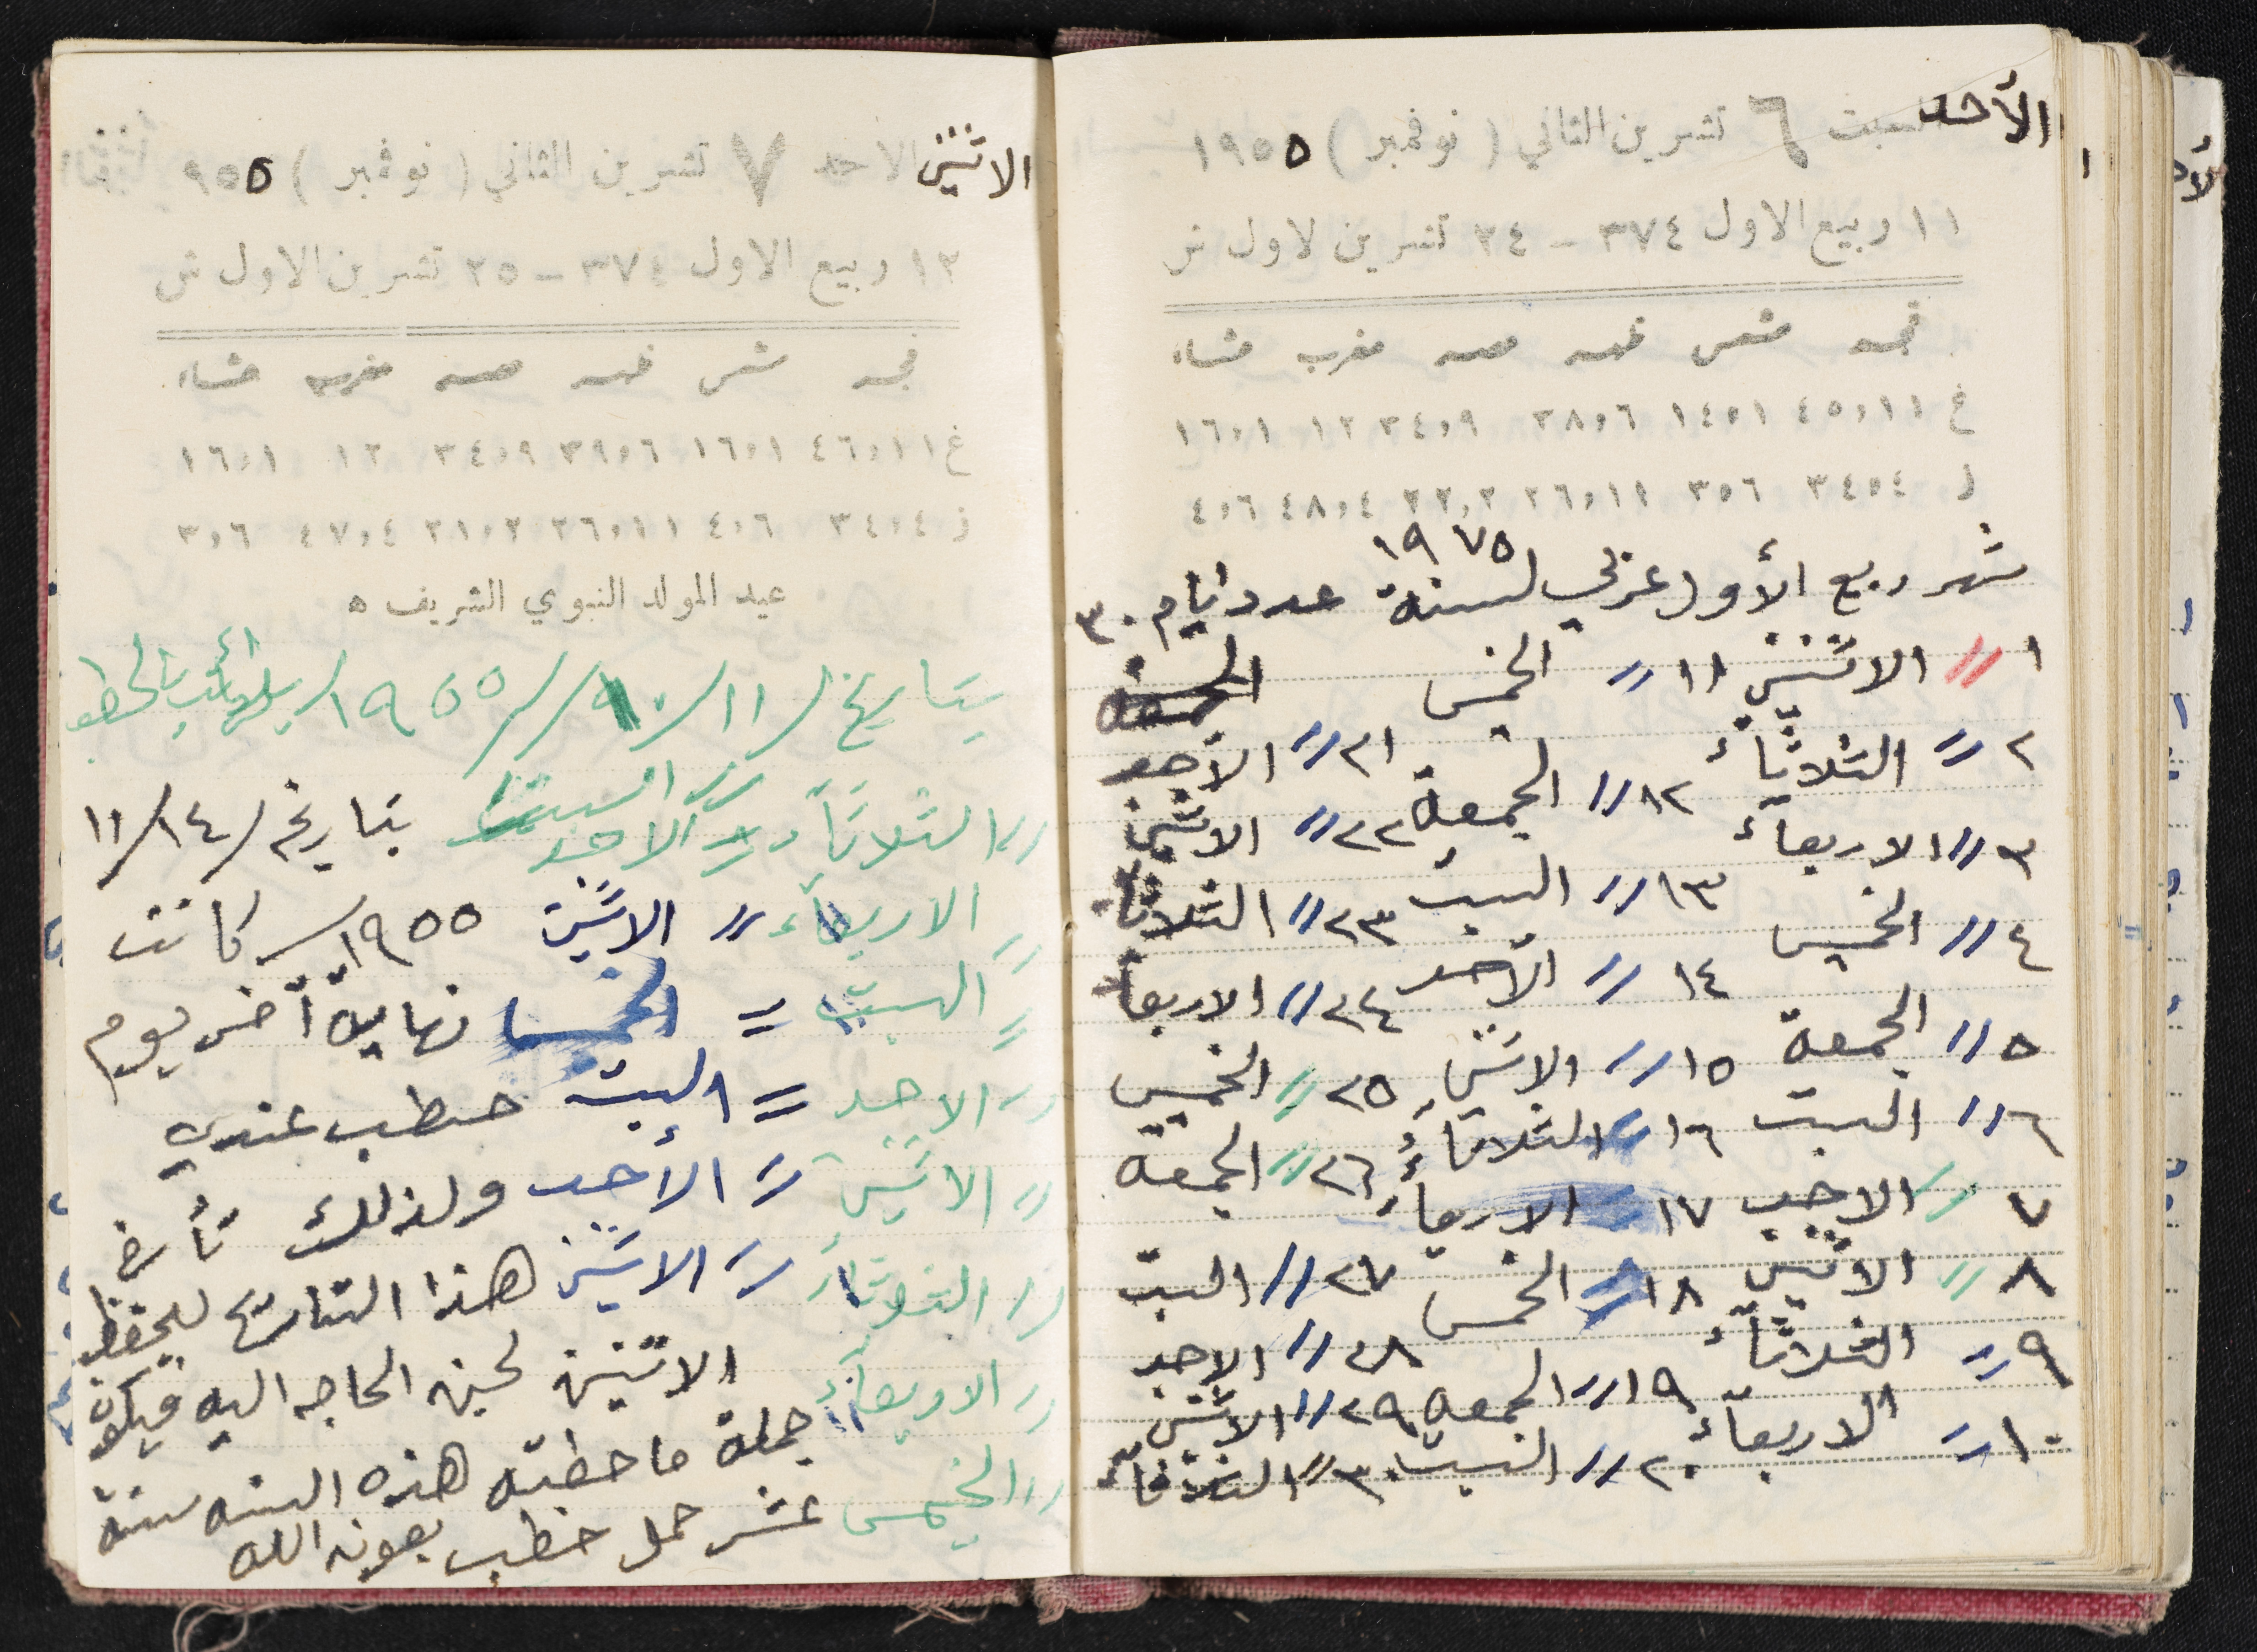 الأحد السبت ٦ تشرين الثاني ( نوفمبر ) ١٩٥٥
١١ ربيع الاول ٣٧٤ – ٢٤ تشرين لاول ش
فجر شمس ظهر عصر مغرب عشاء
غ ٤٥،١١ ١٤،١ ٣٨،٦ ٣٤،٩ ١٢ ١٦،١
ز ٣٤،٤ ٣،٦ ٢٦،١١ ٢٢،٢ ٤٨،٤ ٤،٦
١٩٧٥
شهر ربيع الأول عربي لسنة عدد أيام ٣٠
١ // الاثنين ١١ // الخميس الجمعة
٢ // الثلاثاء ١٢ // الجمعة ٢١ // الأحد
٣ // الاربعاء ١٣ // السبت ٢٢ // الاثنين
٤ // الخميس ١٤ // الأحد ٢٣ // الثلاثاء
٥ // الجمعة ١٥ // الاثنين ٢٤ // الاربعاء
٦ // السبت ١٦ // الثلاثاء ٢٥ // الخميس
٧ // الاحد ١٧ // الاربعاء ٢٦ // الجمعة
٨ // الاثنين ١٨ // الخميس ٢٧ // السبت
٩ // الثلاثاء ١٩ // الجمعة ٢٨ // الاحد
١٠ // الاربعاء ٢٠ // السبت ٢٩ // الاثنين
٣٠ // الثلاثاء
الاثنين الاحد ٧ تشرين الثاني ( نوفمبر ) ٩٥٥
١٢ ربيع الاول ٣٧٤ – ٢٥ تشرين الاول ش
فجر شمس ظهر عصر مغرب عشاء
غ ٤٦،١١ ١٦،١ ٣٩،٦ ٣٤،٩ ١٢ ١٦،١
ز ٣٤،٤ ٤،٦ ٢٦،١١ ٢١،٢ ٤٧،٤ ٣،٦
عيد المولد النبوي الشريف ٥
بتاريخ /١١/١٠/١٩٥٥
// الثلاثاء // السبت
// الاحد بتاريخ /١٤/١١
// الاربعاء // الاثنين ١٩٥٥ كانت
// السبت = الخميس نهاية آخر يوم
// الاحد = السبت حطب عندي
// الاثنين // الأحد ولذلك تأرخ
// الثلاثاء // الاثنين هذا التاريخ ليحفظ
// الاربعاء الاثنين لحين الحاجه اليه فيكون
// الخميس جملة ما حطبته هذه السنه ستة
عشر حمل حطب بعون الله